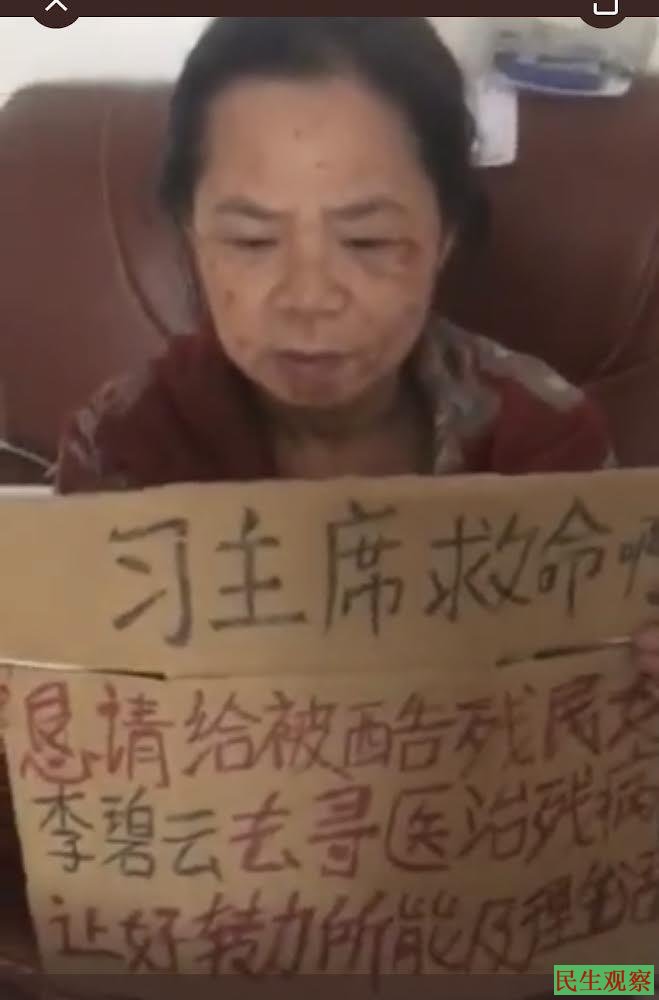 习主席救命啊
恳请给被酷残民
李碧云去寻医治残病
让好转力所能及理生活
民生观察